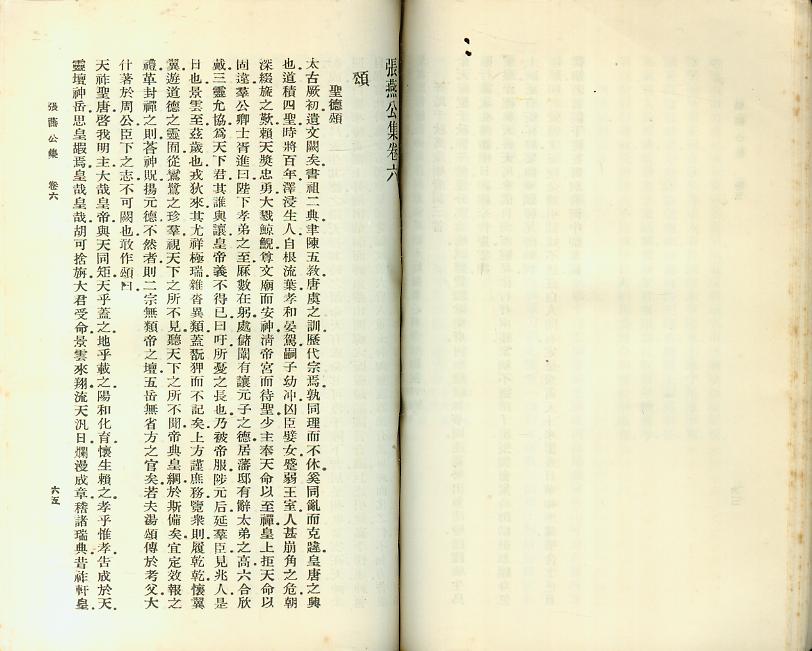 張燕公集卷六
頌
聖德頌
太古厥初遺文闕矣書祖二典聿陳五教唐虞之訓歷代宗焉孰同理而不休奚同亂而克隆皇唐之興
也道積四聖時將百年澤浸生人自根流葉孝和晏駕嗣子幼沖凶臣孽女蠱弱王室人甚崩角之危朝
深綴旒之歎賴天獎忠勇大戮鯨鯢尊文廟而安神清帝宮而待聖少主奉天命以至禪皇上拒天命以
固逡羣公卿士胥進曰陛下孝弟之至厤數在躬處儲闈有讓元子之德居藩邸有辭太弟之高六合欣
戴三靈允協爲天下君其誰與讓皇帝義不得已曰吁所憂之長也乃被帝服陟元后延羣臣見兆人是
日也景雲至茲歲也戎狄來其尤祥極瑞雜沓異類蓋翫狎而不記矣上方謹庶務覽衆則履乾乾懷翼
翼遊道德之靈囿從鴛鷺之珍羣視天下之所不見聽天下之所不聞帝典皇綱於斯備矣宜定效報之
禮革封禪之則荅神貺揚元德不然者則二宗無類帝之壇五岳無省方之官矣若夫湯頌傳於考父大
什著於周公臣下之志不可闕也敢作頌曰
天祚聖唐啓我明主大哉皇帝與天同矩天乎蓋之地乎載之陽和化育懷生賴之孝乎惟孝告成於天
靈壇神岳思皇嘏焉皇哉皇哉胡可捨旃大君受命景雲來翔流天汎日爛漫成章稽諸瑞典昔祚軒皇
張燕公集　卷六
六五